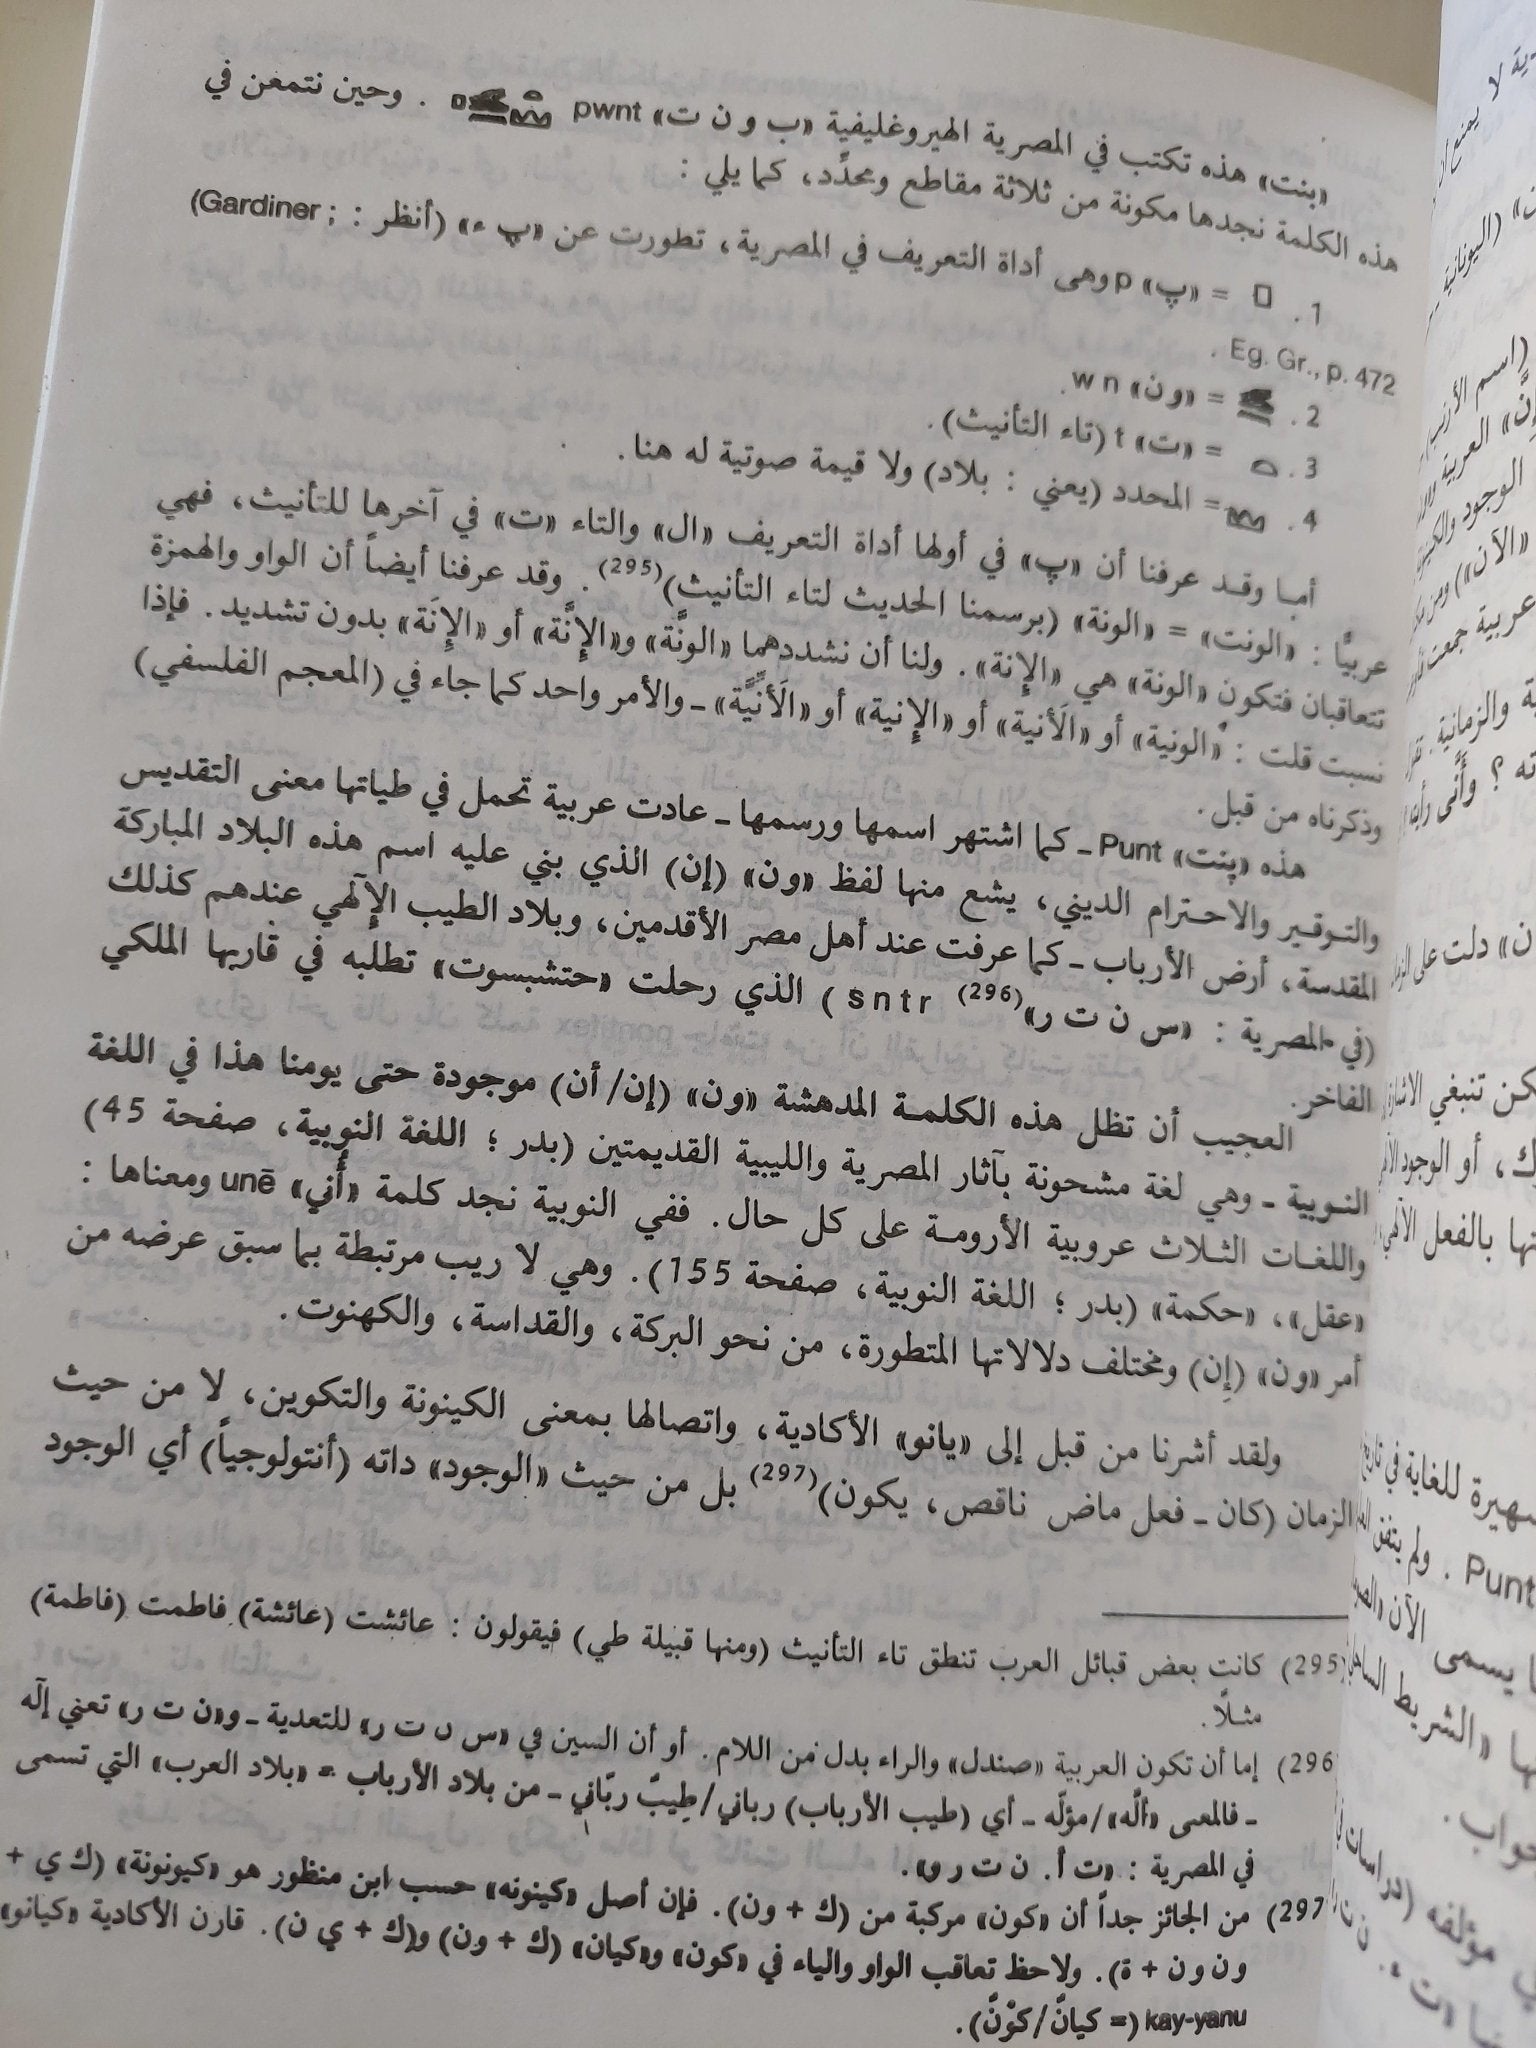 «بنت» هذه تكتب في المصرية الهيروغليفية «ب و ن ت» pwnt . وحين نتمعن في
هذه الكلمة نجدها مكونة من ثلاثة مقاطع ومحدِّد، كما يلي :
1 . = «پ» p وهى أداة التعريف في المصرية، تطورت عن «پ ء» (أنظر : Gardiner ;)
Eg. Gr., p. 472 .
2 . = «ون» w n .
3 . = «ت» t (تاء التأنيث).
4 . = المحدد (يعني : بلاد) ولا قيمة صوتية له هنا.
أما وقد عرفنا أن «پ» في أولها أداة التعريف «ال» والتاء «ت» في آخرها للتأنيث، فهي
عربيًّا : «الونت» = «الونة» (برسمنا الحديث لتاء التأنيث)(295) . وقد عرفنا أيضاً أن الواو والهمزة
تتعاقبان فتكون «الونة» هي «الإنة» . ولنا أن نشددهما «الونَّة» و«الإنَّة» أو «الإنَة» بدون تشديد . فإذا
نسبت قلت : «الونية» أو «الَأنية» أو «الإنية» أو «الَأنِّيَّة» ـ والأمر واحد كما جاء في (المعجم الفلسفي)
وذكرناه من قبل.
هذه «پنت» Punt ـ كما اشتهر اسمها ورسمها ـ عادت عربية تحمل في طياتها معنى التقديس
والتوقير والاحترام الديني، يشع منها لفظ «ون» (إن) الذي بني عليه اسم هذه البلاد المباركة
المقدسة، أرض الأرباب ـ كما عرفت عند أهل مصر الأقدمين، وبلاد الطيب الإلٓهي عندهم كذلك
(في المصرية : «س ن ت ر»(296) s n t r ) الذي رحلت «حتشبسوت» تطلبه في قاربها الملكي
الفاخر.
العجيب أن تظل هذه الكلمة المدهشة «ون» (إن/ أن) موجودة حتى يومنا هذا في اللغة
النوبية ـ وهي لغة مشحونة بآثار المصرية والليبية القديمتين (بدر ؛ اللغة النوبية، صفحة 45)
واللغات الثلاث عروبية الأرومة على كل حال. ففي النوبية نجد كلمة «أُني» unē ومعناها :
«عقل»، «حكمة» (بدر ؛ اللغة النوبية، صفحة 155). وهي لا ريب مرتبطة بما سبق عرضه من
أمر «ون» (إن) ومختلف دلالاتها المتطورة، من نحو البركة، والقداسة، والكهنوت.
ولقد أشرنا من قبل إلى «يانو» الأكادية، واتصالها بمعنى الكينونة والتكوين، لا من حيث
الزمان (كان ـ فعل ماض ناقص، يكون)(297) بل من حيث «الوجود» داته (أنتولوجياً) أي الوجود
(295) كانت بعض قبائل العرب تنطق تاء التأنيث (ومنها قبيلة طي) فيقولون : عائشت (عائشة) فاطمت (فاطمة)
مثلًا.
(296) إما أن تكون العربية «صندل» والراء بدل من اللام. أو أن السين في «س ن ت ر» للتعدية ـ و«ن ت ر» تعني إلٓه
ـ فالمعنى «ألَّه»/مؤلّه ـ أي (طيب الأرباب) رباني/طِيبٌ ربّاني ـ من بلاد الأرباب = «بلاد العرب» التي تسمى
في المصرية : «ت أ. ن ت ر و».
(297) من الجائز جداً أن «كون» مركبة من (ك + ون). فإن أصل «كينونه» حسب ابن منظور هو «كيونونة» (ك ي +
ون ون + ة). ولاحظ تعاقب الواو والياء في «كون» و«كيان» (ك + ون) و(ك + ي ن). قارن الأكادية «كيانو»
kay-yanu (= كيانٌ/كوْنٌ).